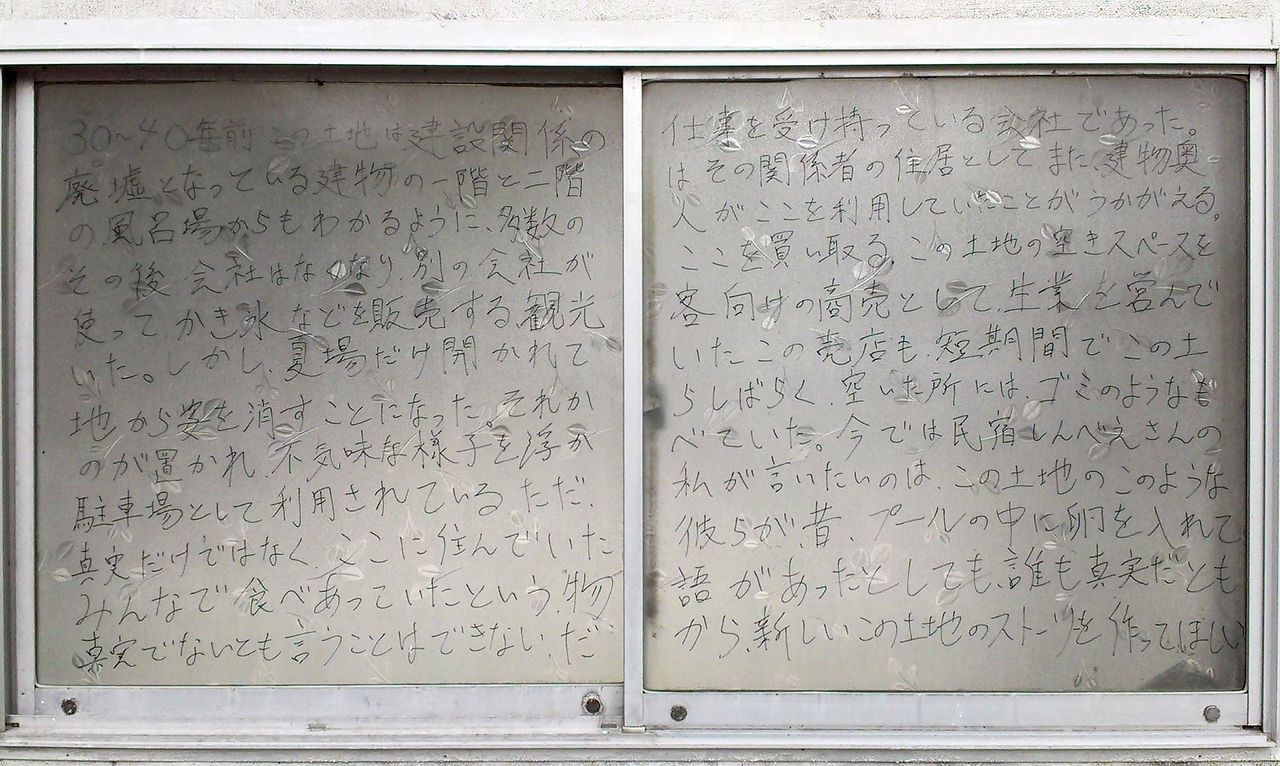 30〜40年前この土地は建設関係の仕事を受け持っている会社であった。
廃墟となっている建物の一階と二階はその関係者の住居としてまた、建物奥
の風呂場からもわかるように、多数の人がここを利用していたことがうかがえる。
その後、会社はなくなり、別の会社がここを買い取る。この土地の空きスペースを
使って、かき氷などを販売する、観光客向けの商売として、生業を営んで
いた。しかし、夏場だけ開かれていたこの売店も、短期間でこの土
地から姿を消すことになった。それからしばらく、空いた所には、ゴミのようなも
のが置かれ、不気味な様子を浮かべていた。今では民宿しんべえさんの
駐車場として利用されている。ただ、私が言いたいのは、この土地のこのような
真実だけではなく、ここに住んでいた彼らが、昔、プールの中に卵を入れて
みんなで食べあっていたという、物語があったとしても、誰も真実だとも
真実でないとも言うことはできない、だから、新しいこの土地のストーリを作ってほしい